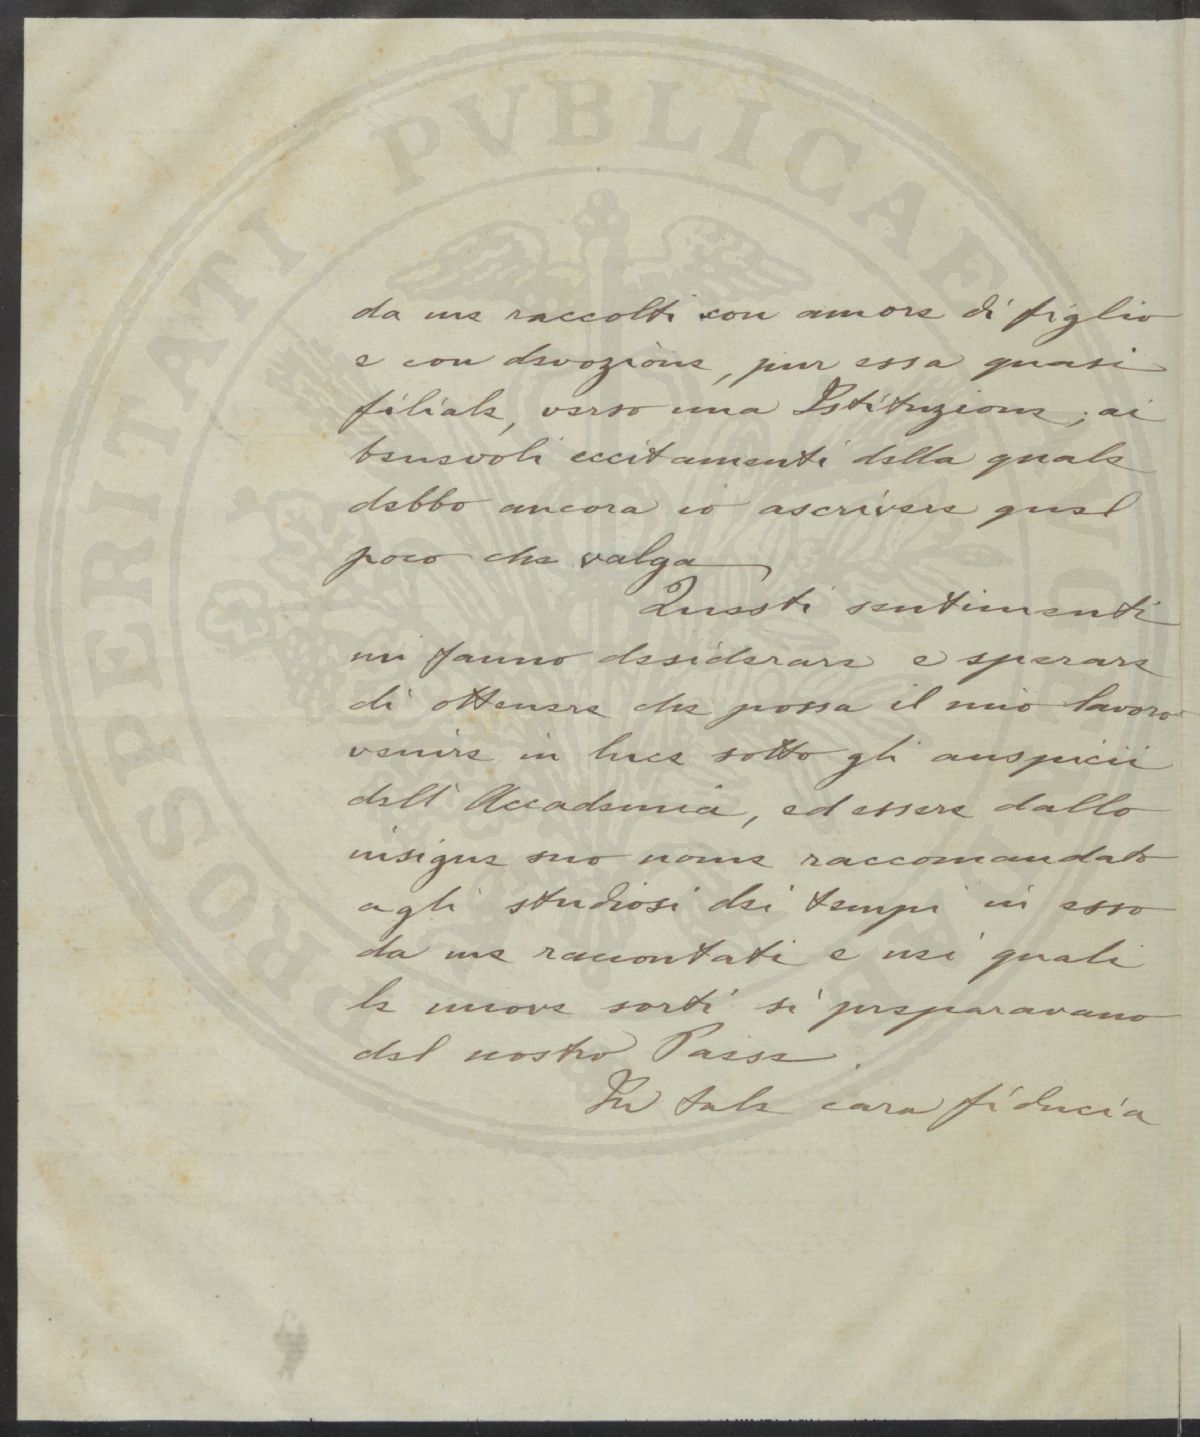 da me raccolti con amore di figlio
e con devozione, pur essa quasi
filiale, verso una Istituzione, ai
benevoli eccitamenti della quale
debbo ancora io ascrivere quel
poco che valga
Questi sentimenti
mi fanno desiderare e sperare
di ottenere che possa il mio lavoro
venire in luce sotto gli auspicii
dell'Accademia, ed essere dallo
insigne suo nome raccomandato
agli studiosi dei tempi in esso
da me raccontati e nei quali
le nuove sorti si preparavano
del nostro Paese.
In tale cara fiducia
PROSPERITATI PVBLICAE